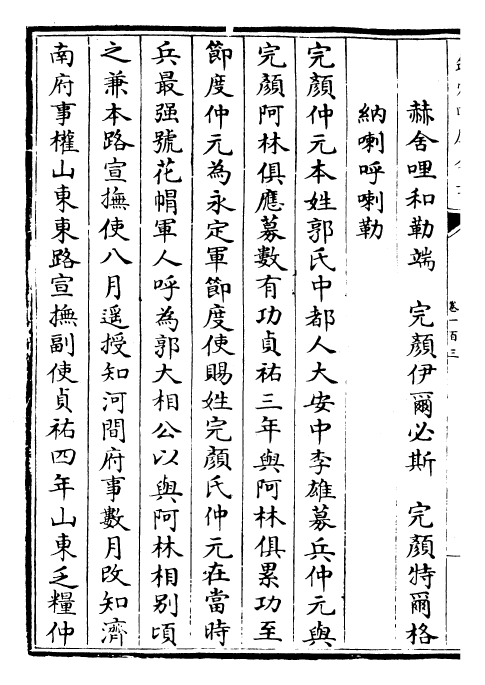 卷一百三
赫舍哩和勒端　完顔伊爾必斯　完顔特爾格
納喇呼喇勒
完顔仲元本姓郭氏中都人大安中李雄募兵仲元與
完顔阿林俱應募數有功貞祐三年與阿林俱累功至
節度仲元為永定軍節度使賜姓完顔氏仲元在當時
兵最强號花帽軍人呼為郭大相公以與阿林相别頃
之兼本路宣撫使八月遥授知河間府事數月改知濟
南府事權山東東路宣撫副使貞祐四年山東乏糧仲